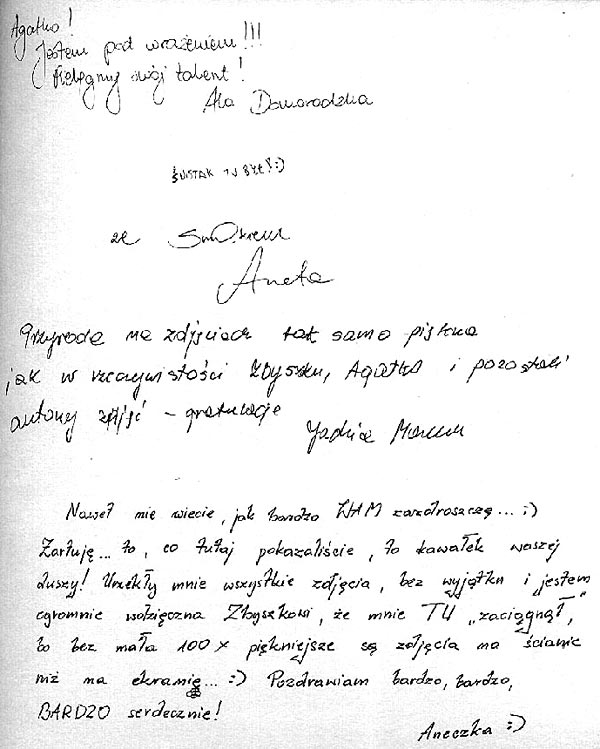 Agatko!
Jestem pod wrażeniem!!!
Pielęgnuj swój talent!
Ala Domoradzka
ŚWISTAK TU BYŁ! :)
ze SmOkiem
Aneta
Przyroda na zdjęciach tak samo piękna
jak w rzeczywistości Zbyszku, Agatko i pozostali
autorzy zdjęć – gratulacje
Jadwiga
Nawet nie wiecie, jak bardzo WAM zazdroszczę... ;)
Żartuję... to, co tutaj pokazaliście, to kawałek waszej
duszy! Urzekły mnie wszystkie zdjęcia, bez wyjątku i jestem
ogromnie wdzięczna Zbyszkowi, że mnie TU „zaciągnął",
bo bez mała 100 x piękniejsze są zdjęcia na ścianie
niż na ekranie... :) Pozdrawiam bardzo, bardzo,
BARDZO serdecznie!
Aneczka :)